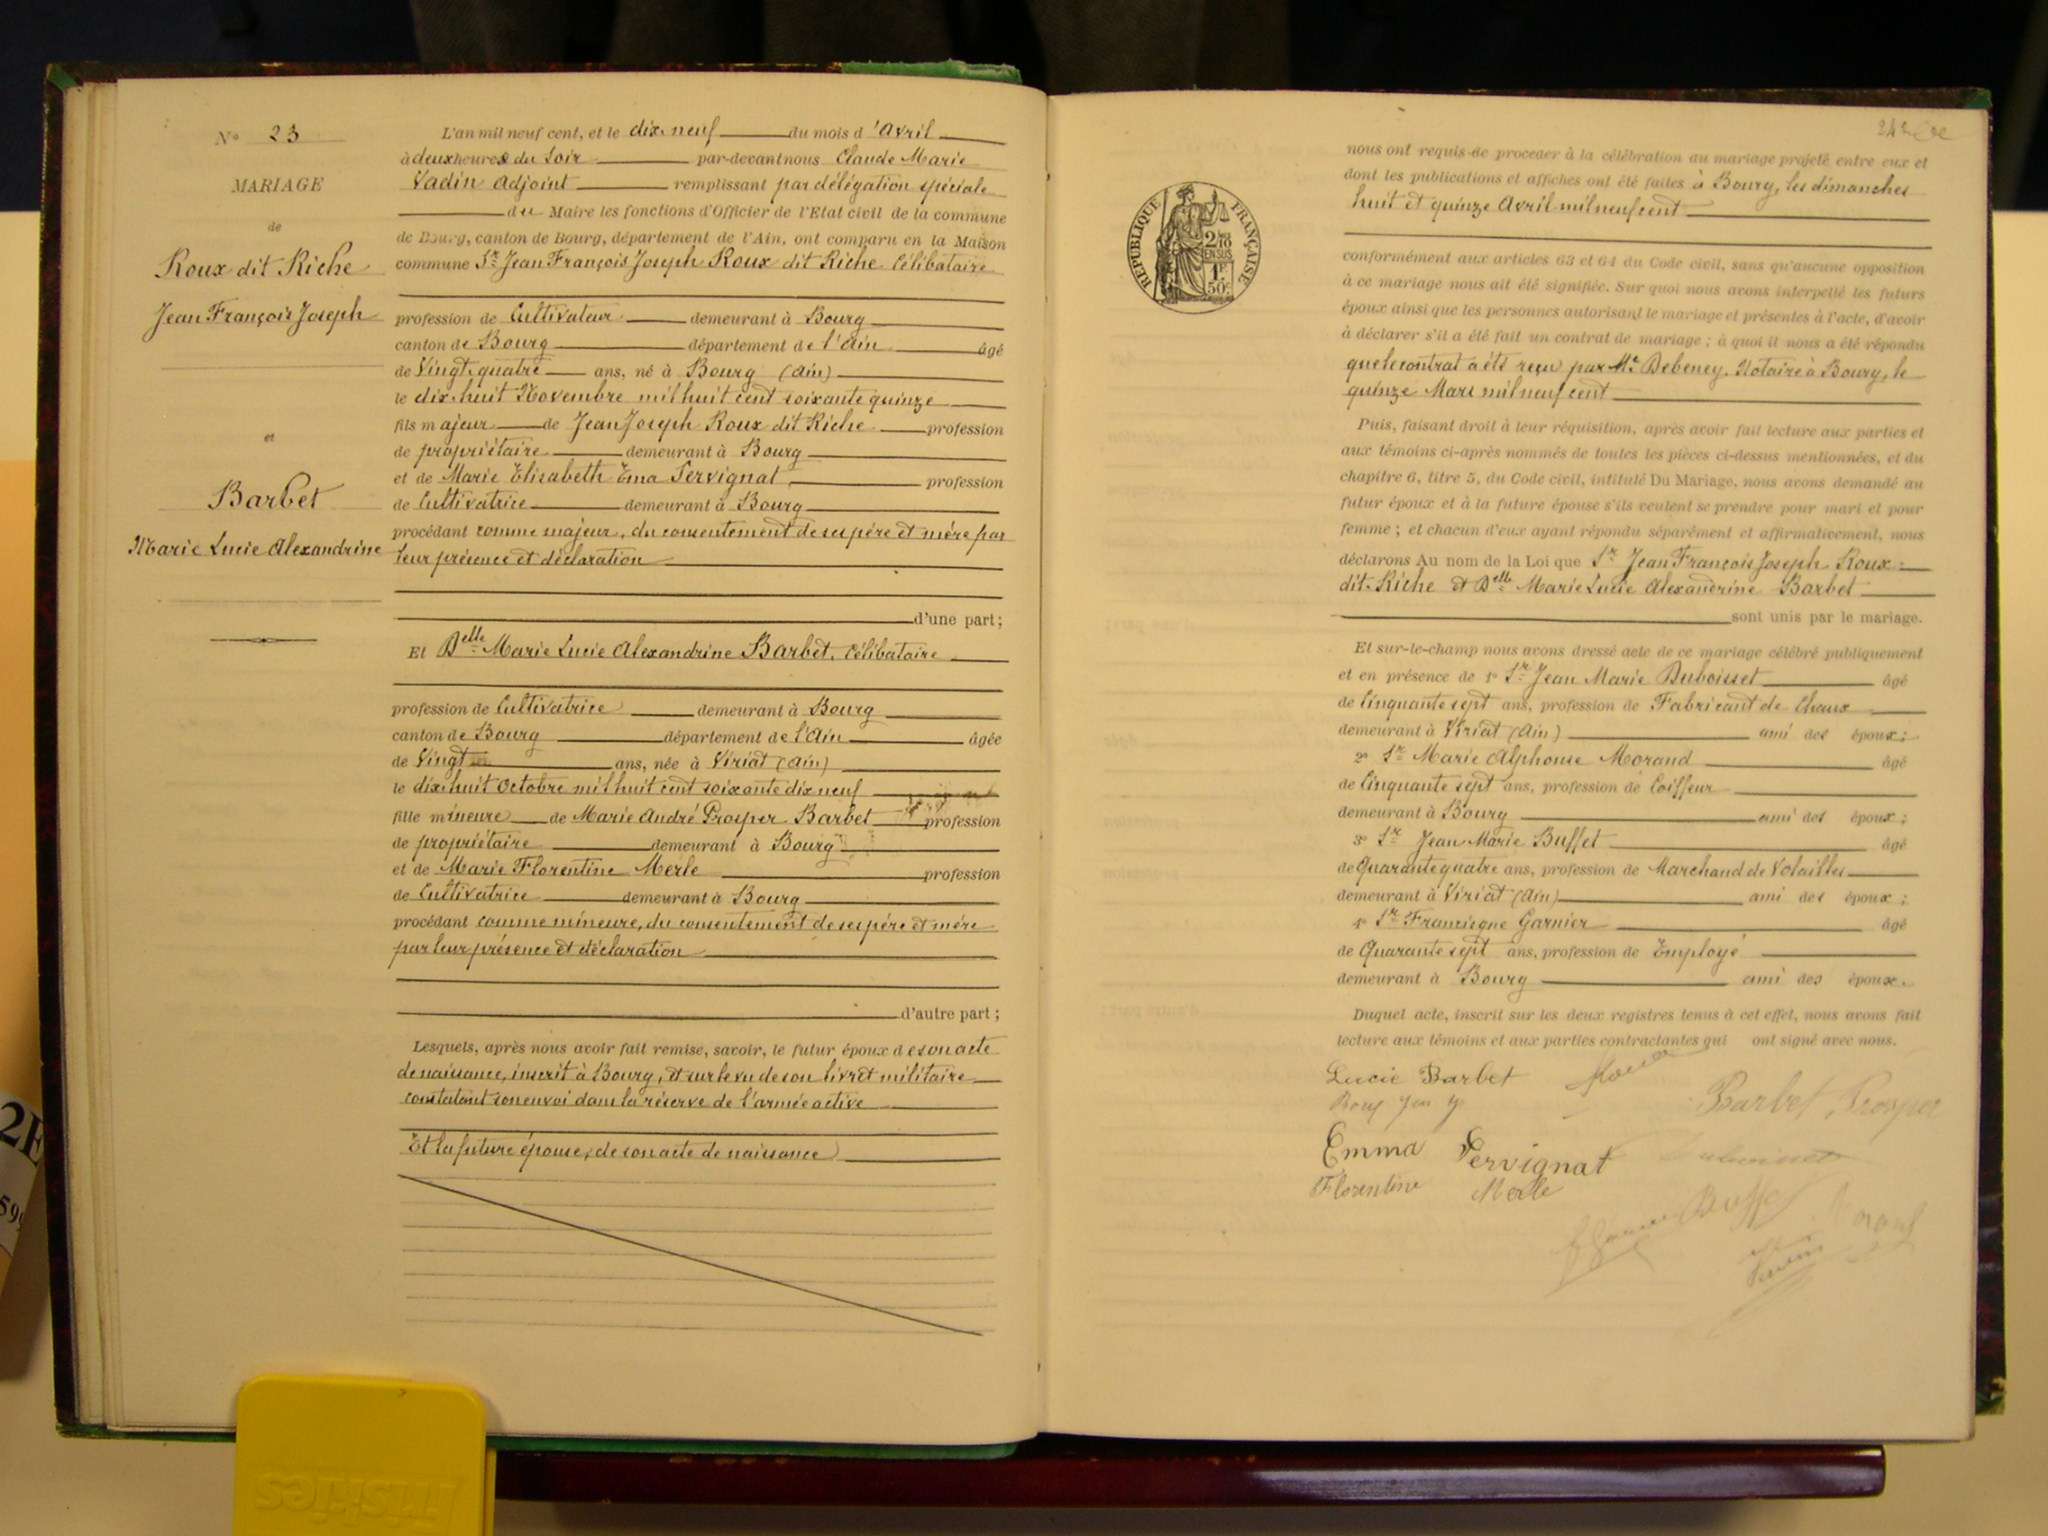 N° 23
MARIAGE
de
Roux dit Riche
Jean François Joseph
et
Barbet
Marie Lucie Alexandrine
L'an mil neuf cent, et le dix-neuf du mois d'Avril
à deux heures du Soir par-devant nous Claude Marie
Vadin Adjoint remplissant par délégation spéciale
du Maire les fonctions d'Officier de l'Etat civil de la commune
de Bourg, canton de Bourg, département de l'Ain, ont comparu en la Maison
commune Sr Jean François Joseph Roux dit Riche Célibataire
profession de Cultivateur demeurant à Bourg
canton de Bourg département de l'Ain âgé
de Vingt-quatre ans, né à Bourg (Ain)
le dix-huit Novembre mil huit cent soixante quinze
fils majeur de Jean Joseph Roux dit Riche profession
de propriétaire demeurant à Bourg
et de Marie Elisabeth Ema Pervignat profession
de Cultivatrice demeurant à Bourg
procédant comme majeur, du consentement de ses père et mère par
leur présence et déclaration
d'une part;
Et Delle Marie Lucie Alexandrine Barbet, Célibataire
profession de Cultivatrice demeurant à Bourg
canton de Bourg département de l'Ain âgée
de Vingt ans, née à Viriat (Ain)
le dix-huit Octobre mil huit cent soixante dix neuf
fille mineure de Marie André Prosper Barbet profession
de propriétaire demeurant à Bourg
et de Marie Florentine Merle profession
de Cultivatrice demeurant à Bourg
procédant comme mineure, du consentement de ses père et mère
par leur présence et déclaration
d'autre part;
Lesquels, après nous avoir fait remise, savoir, le futur époux de son acte
de naissance, inscrit à Bourg, et sur le vu de son livret militaire
constatant son envoi dans la réserve de l'armée active
Et la future épouse, de son acte de naissance
RÉPUBLIQUE FRANÇAISE
2/10
EN SUS
1F
50c
nous ont requis de procéder à la célébration du mariage projeté entre eux et
dont les publications et affiches ont été faites à Bourg, les dimanches
huit et quinze Avril mil neuf cent
conformément aux articles 63 et 64 du Code civil, sans qu'aucune opposition
à ce mariage nous ait été signifiée. Sur quoi nous avons interpellé les futurs
époux ainsi que les personnes autorisant le mariage et présentes à l'acte, d'avoir
à déclarer s'il a été fait un contrat de mariage; à quoi il nous a été répondu
que le contrat a été reçu par Me Debeney, Notaire à Bourg, le
quinze Mars mil neuf cent
Puis, faisant droit à leur réquisition, après avoir fait lecture aux parties et
aux témoins ci-après nommés de toutes les pièces ci-dessus mentionnées, et du
chapitre 6, titre 5, du Code civil, intitulé Du Mariage, nous avons demandé au
futur époux et à la future épouse s'ils veulent se prendre pour mari et pour
femme; et chacun d'eux ayant répondu séparément et affirmativement, nous
déclarons Au nom de la Loi que Sr Jean François Joseph Roux
dit-Riche et Delle Marie Lucie Alexandrine Barbet
sont unis par le mariage.
Et sur-le-champ nous avons dressé acte de ce mariage célébré publiquement
et en présence de 1° Sr Jean Marie Duboisset âgé
de Cinquante sept ans, profession de Fabricant de Chaux
demeurant à Viriat (Ain) ami des époux;
2° Sr Marie Alphonse Morand âgé
de Cinquante sept ans, profession de Coiffeur
demeurant à Bourg ami des époux;
3° Sr Jean Marie Buffet âgé
de Quarante quatre ans, profession de Marchand de Volailles
demeurant à Viriat (Ain) ami des époux;
4° Sr Francisque Garnier âgé
de Quarante sept ans, profession de Employé
demeurant à Bourg ami des époux.
Duquel acte, inscrit sur les deux registres tenus à cet effet, nous avons fait
lecture aux témoins et aux parties contractantes qui ont signé avec nous.
Lucie Barbet
Barbet Prosper
Emma Pervignat
Duboisset
Florentine Merle
Buffet
Morand